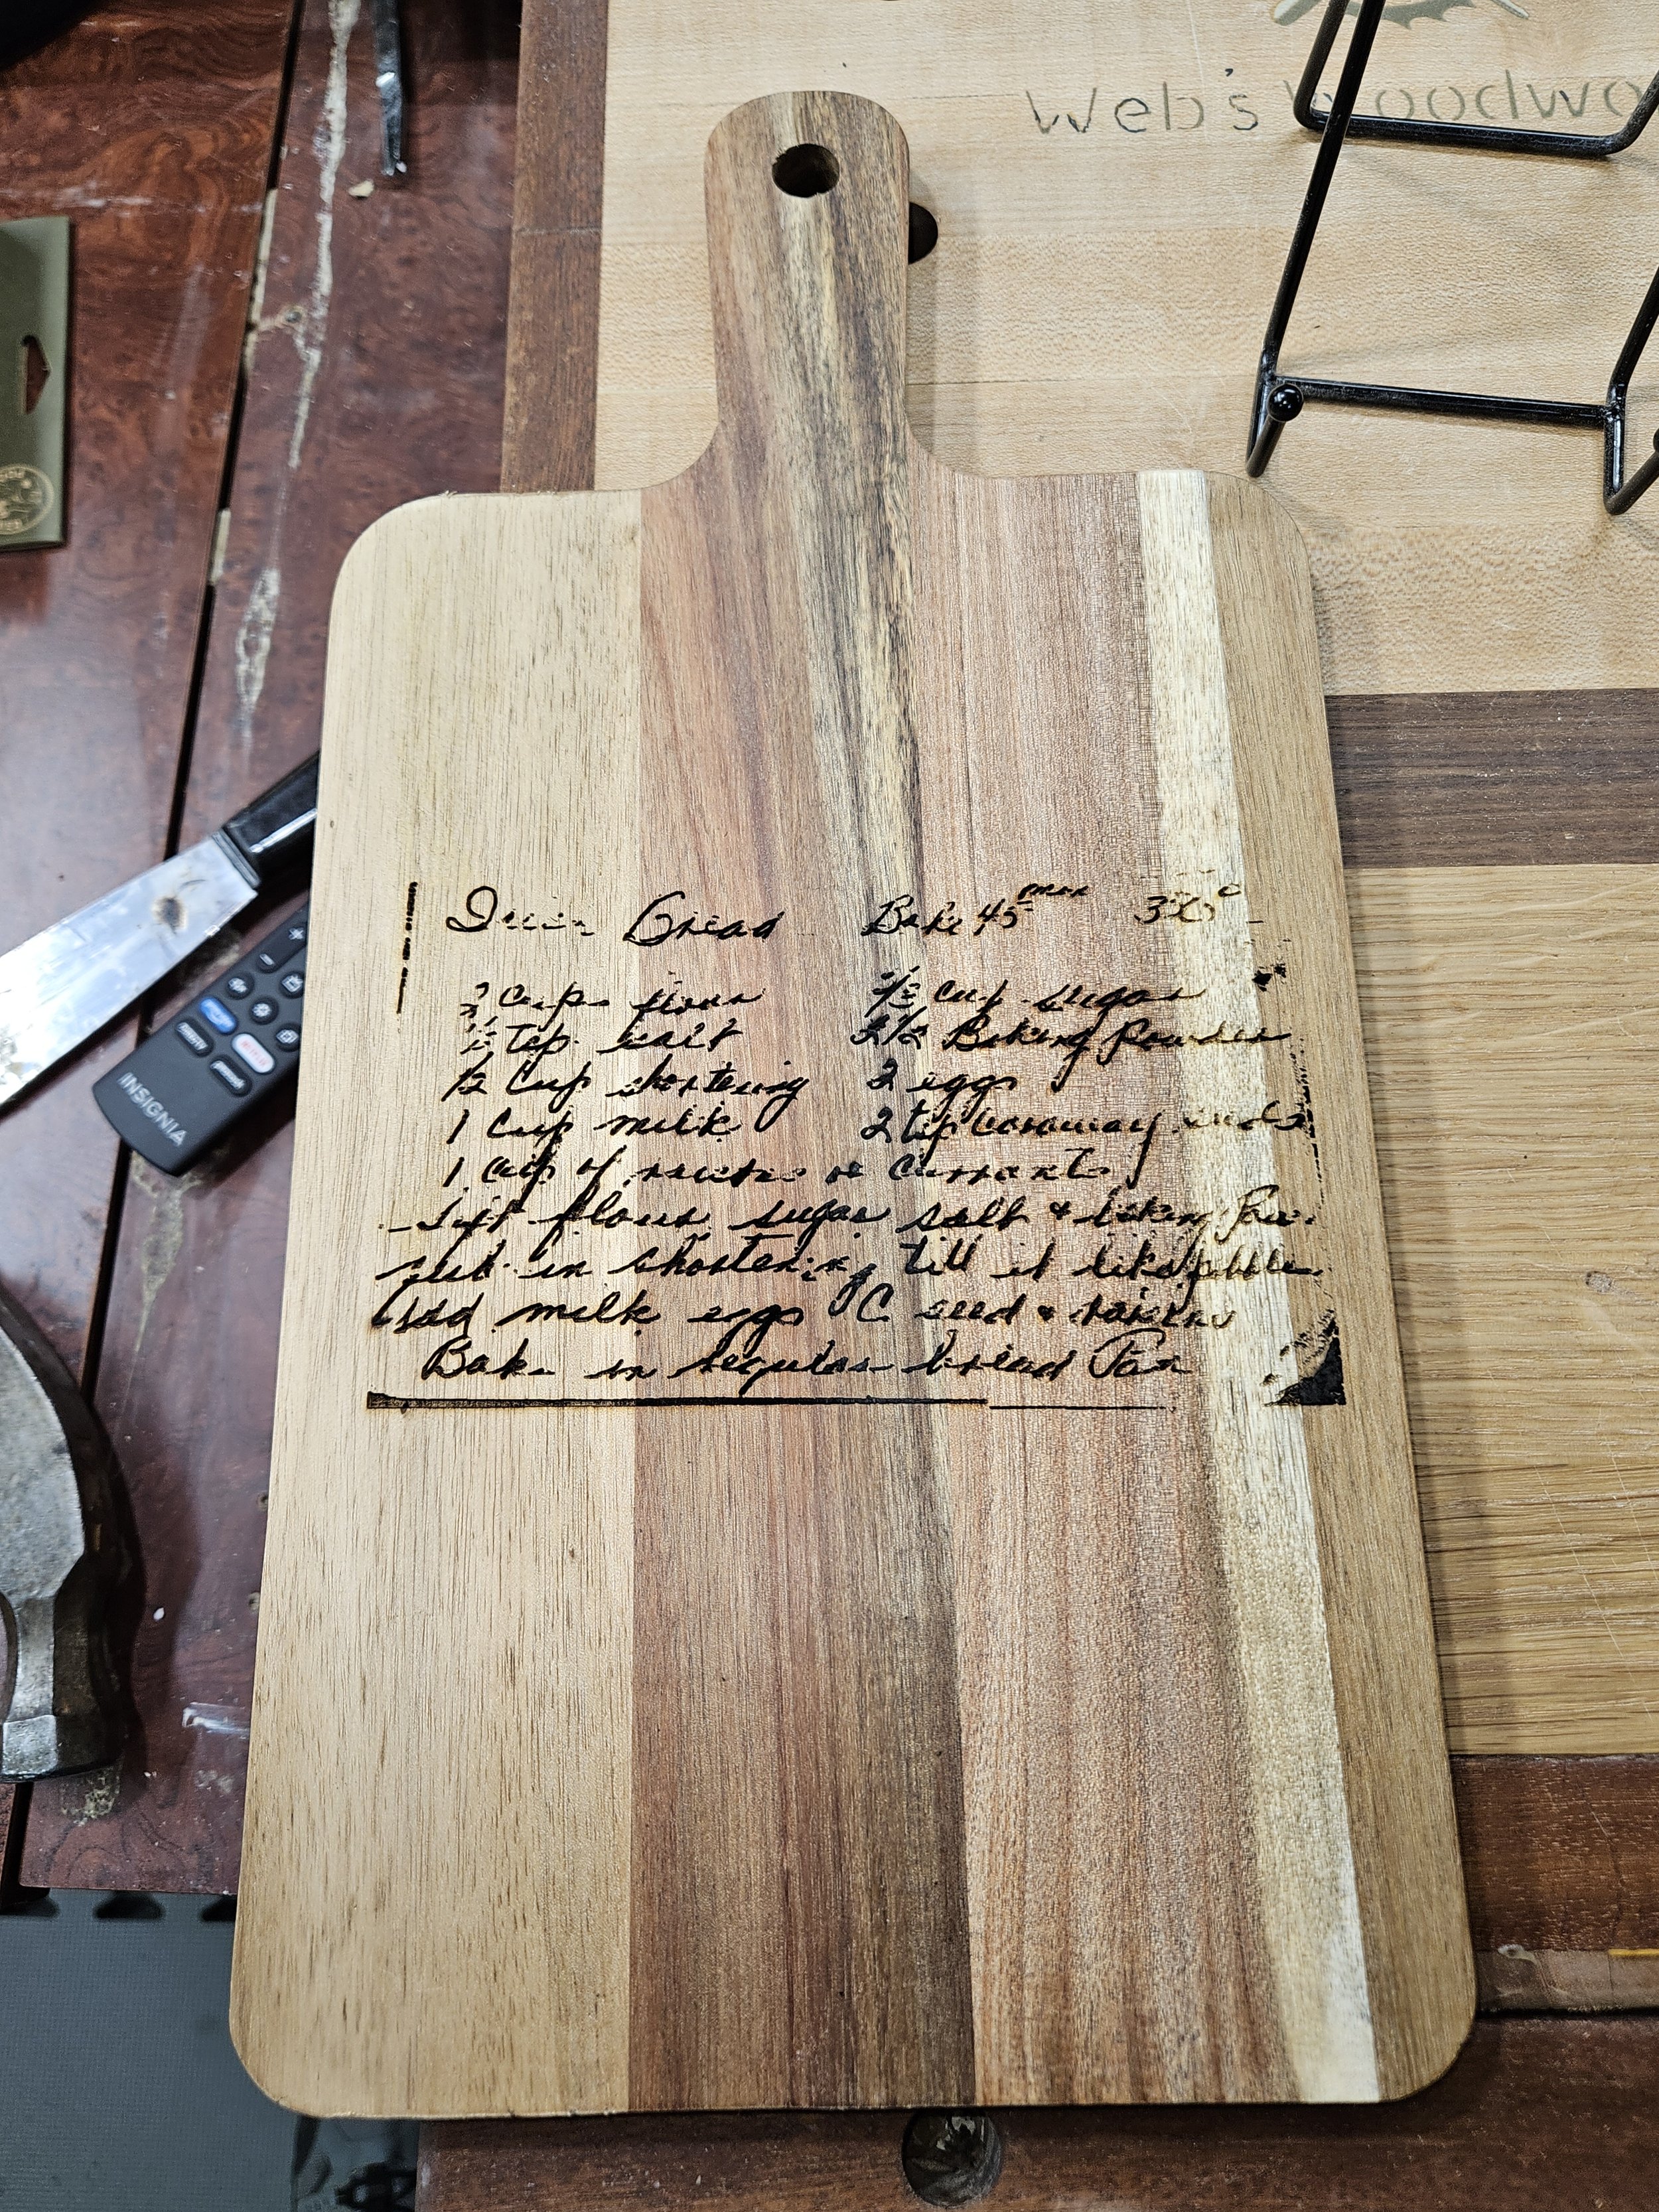 Web's Woodwo
Bread Bake 45 min 350°
Cups flour cup sugar
1/2 Tsp. salt 2 1/2 Baking Powder
1/2 Cup shortening 2 eggs
1 Cup milk 2 tsp caraway seeds
1 Cup of raisins or currants
Sift flour, sugar salt & baking Pow.
rub in shortening till it like pebbles
Add milk eggs C seed & raisins
Bake in regular bread Pan
INSIGNIA
NETFLIX